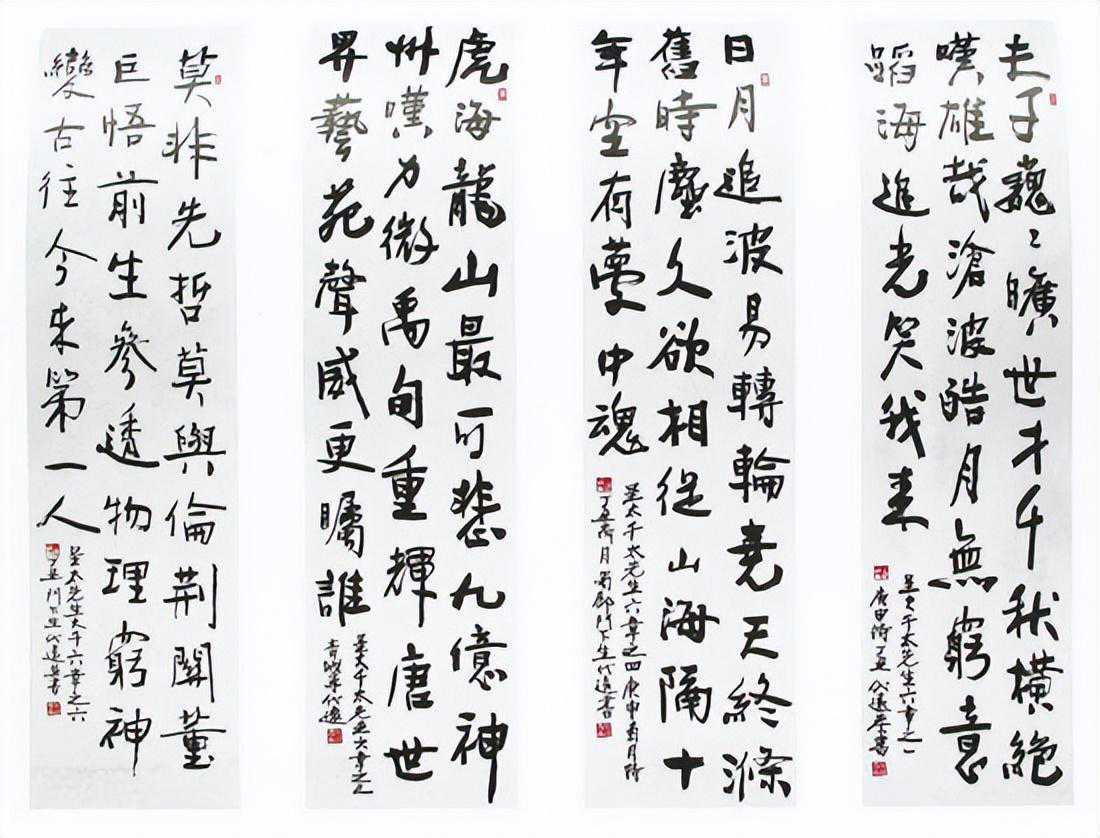 夫子巍〻曠世才千秋橫絕
嘆雄哉滄波酷月無窮意
蹈海追光笑我來
呈大千太先生六章之一
庚申時丁丑代遠書
日月追波易轉輪堯天終滌
舊時塵久欲相從山海隔十
年空有夢中魂
呈大千太先生六章之四庚申
丁丑月蜀郡門下生代遠書
虎海龍山最可悲九億神
州嘆力微禹甸重輝唐世
界藝苑聲威更矚誰
呈大千太先生六章之
代遠
莫非先哲莫與倫荊關董
巨悟前生參透物理窮神
變古往今來第一人
呈太先生大千六章之六
丁丑門下生代遠書